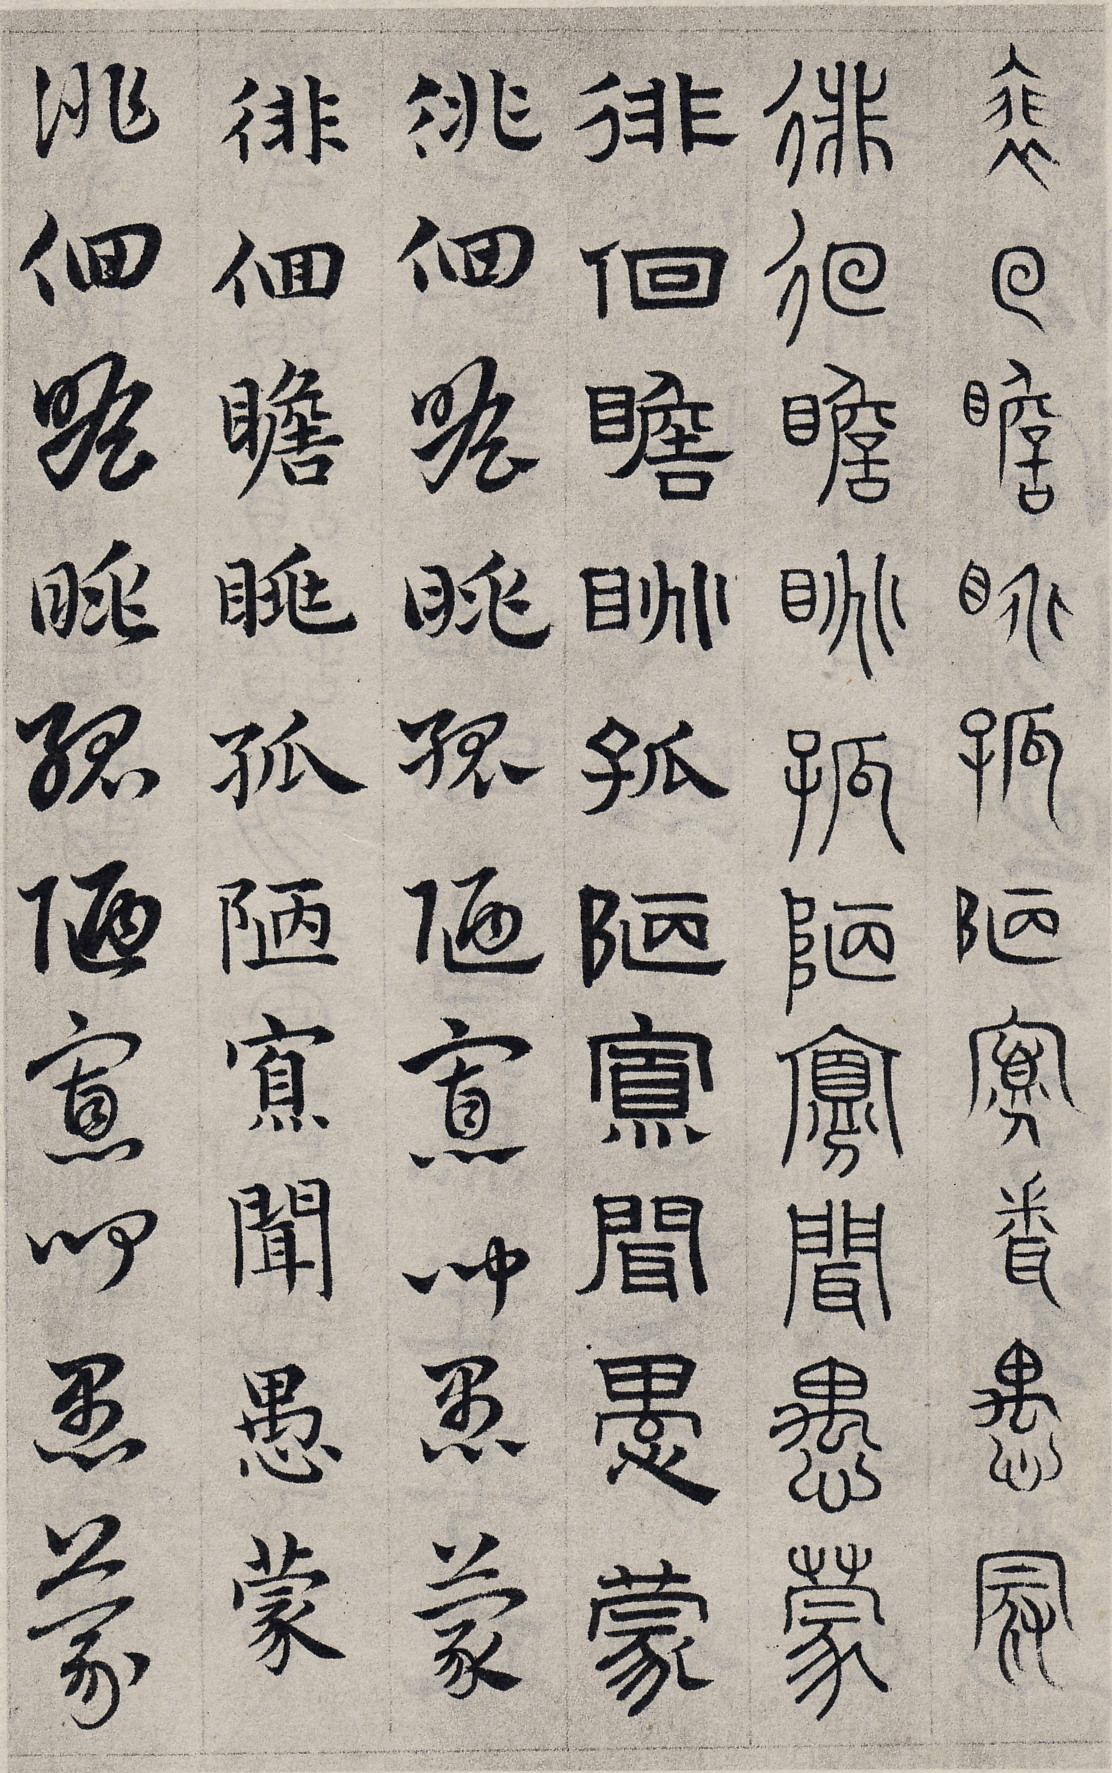 徘徊瞻眺孤陋寡聞愚蒙
徘徊瞻眺孤陋寡聞愚蒙
徘徊瞻眺孤陋寡聞愚蒙
徘徊瞻眺孤陋寡聞愚蒙
徘徊瞻眺孤陋寡聞愚蒙
徘徊瞻眺孤陋寡聞愚蒙